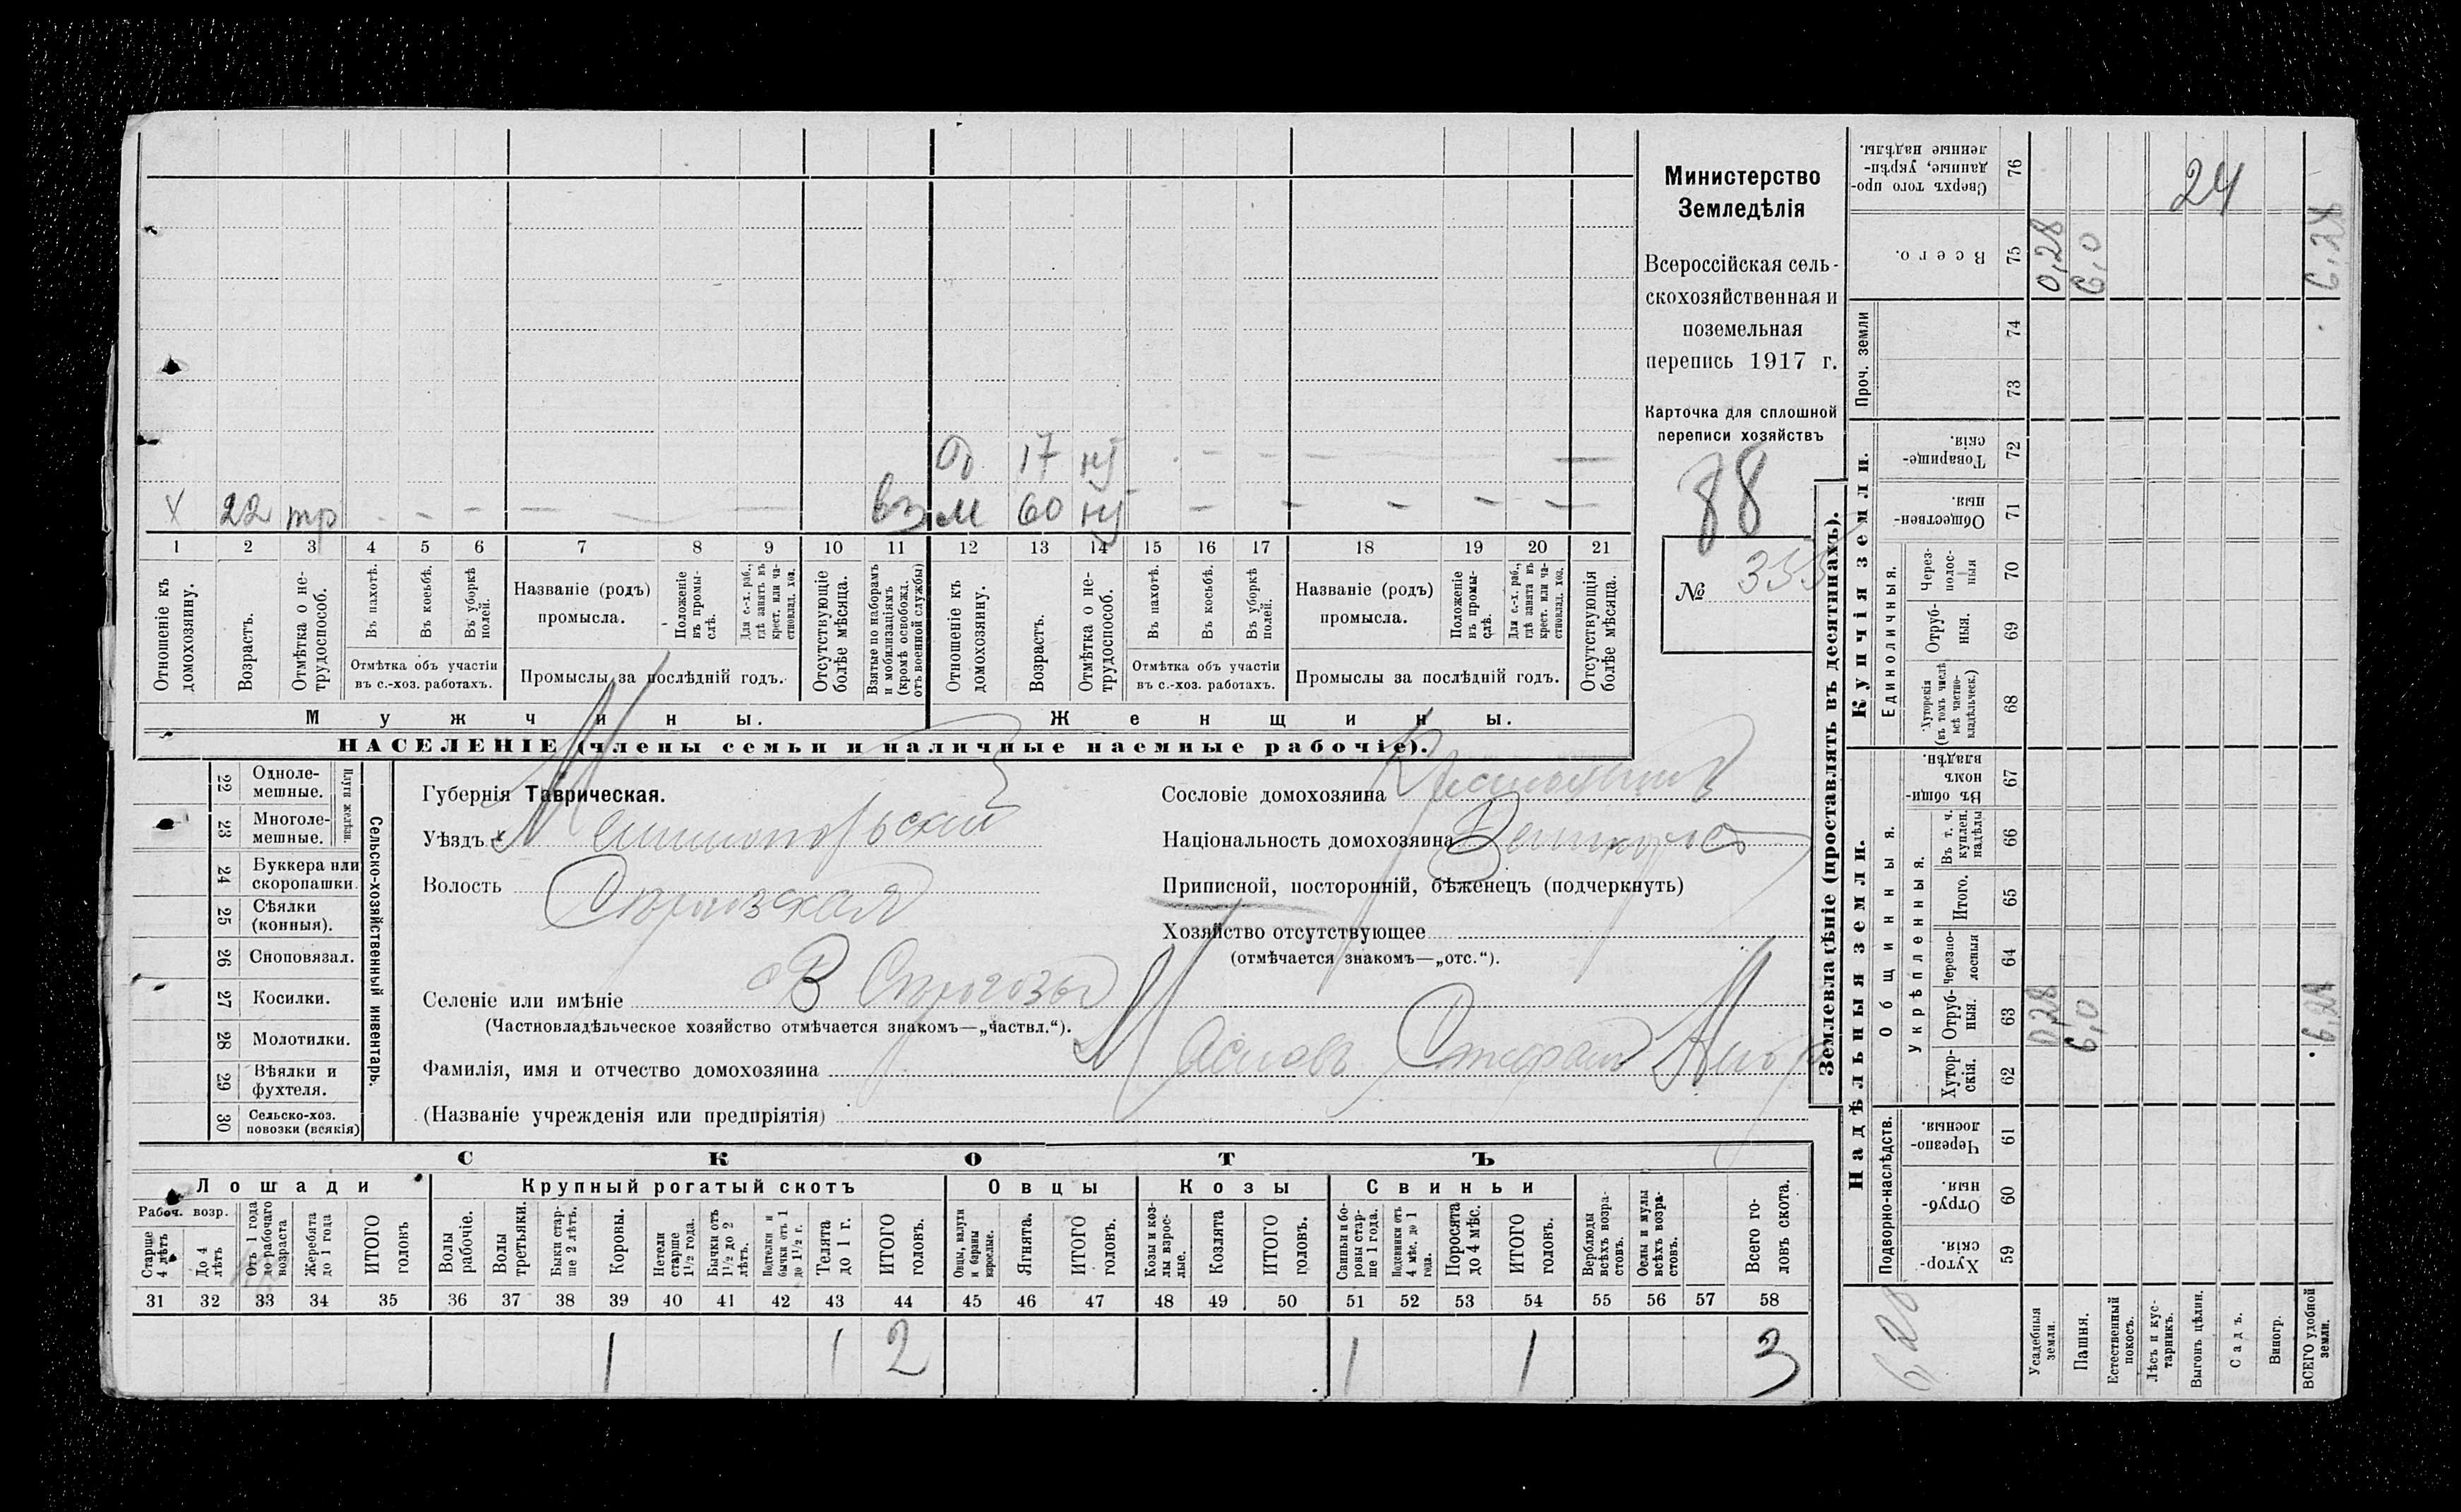 Министерство
Земледѣлія
Всероссійская сель-
скохозяйственная и
поземельная
перепись 1917 г.
Карточка для сплошной
переписи хозяйствъ
88
№ 355
О 17 нт
Х 22 тр - - - - - - вз м 60 нт - - - - -
1 2 3 4 5 6 7 8 9 10 11 12 13 14 15 16 17 18 19 20 21
Отношеніе къ домохозяину.
Возрастъ.
Отмѣтка о не-трудоспособ.
Въ пахотѣ.
Въ косьбѣ.
Въ уборкѣ полей.
Отмѣтка объ участіи
въ с.-хоз. работахъ.
Названіе (родъ)
промысла.
Положеніе въ промы-слѣ.
Для с.-х. раб., гдѣ занятъ въ крест. или ча-стновлад. хоз.
Промыслы за послѣдній годъ.
Отсутствующіе болѣе мѣсяца.
Взятые по наборамъ и мобилизаціямъ (кромѣ освобожд. отъ военной службы)
Отношеніе къ домохозяину.
Возрастъ.
Отмѣтка о не-трудоспособ.
Въ пахотѣ.
Въ косьбѣ.
Въ уборкѣ полей.
Отмѣтка объ участіи
въ с.-хоз. работахъ.
Названіе (родъ)
промысла.
Положеніе въ промы-слѣ.
Для с.-х. раб., гдѣ занята въ крест. или ча-стновлад. хоз.
Промыслы за послѣдній годъ.
Отсутствующія болѣе мѣсяца.
Мужчины. Женщины.
НАСЕЛЕНІЕ (члены семьи и наличные наемные рабочіе).
Сельско-хозяйственный инвентарь.
Плуги желѣзн.
22 Одноле-мешные.
23 Многоле-мешные.
24 Буккера или скоропашки.
25 Сѣялки (конныя).
26 Сноповязал.
27 Косилки.
28 Молотилки.
29 Вѣялки и фухтеля.
30 Сельско-хоз. повозки (всякія)
Губернія Таврическая.
Уѣздъ Мелитопольскій
Волость
Селеніе или имѣніе с В Сѣрогозы
(Частновладѣльческое хозяйство отмѣчается знакомъ—„частвл.“).
Фамилія, имя и отчество домохозяина Маслова Стефанъ
(Названіе учрежденія или предпріятія)
Сословіе домохозяина Крестьянинъ
Національность домохозяина Великорос
Приписной, посторонній, бѣженецъ (подчеркнуть)
Хозяйство отсутствующее
(отмѣчается знакомъ—„отс.“).
СКОТЪ
Лошади Крупный рогатый скотъ Овцы Козы Свиньи
Рабоч. возр.
Старше 4 лѣтъ
До 4 лѣтъ
Отъ 1 года до рабочаго возраста
Жеребята до 1 года
ИТОГО головъ
Волы рабочіе.
Волы третьяки.
Быки стар-ше 2 лѣтъ.
Коровы.
Нетели старше 1½ года.
Бычки отъ 1½ до 2 лѣтъ.
Подтелки и бычки отъ 1 до 1½ г.
Телята до 1 г.
ИТОГО головъ.
Овцы, валухи и бараны взрослые.
Ягнята.
ИТОГО головъ.
Козы и коз-лы взрос-лые.
Козлята
ИТОГО головъ.
Свиньи и бо-ровы стар-ше 1 года.
Подсвинки отъ 4 мѣс. до 1 года.
Поросята до 4 мѣс.
ИТОГО головъ.
Верблюды всѣхъ возра-стовъ.
Ослы и мулы всѣхъ возра-стовъ.
Всего го-ловъ скота.
31 32 33 34 35 36 37 38 39 40 41 42 43 44 45 46 47 48 49 50 51 52 53 54 55 56 57 58
1 1 2 1 1 3
Землевладѣніе (проставлять въ десятинахъ).
Надѣльныя земли. Купчія земли. Проч. земли
Подворно-наслѣдств. Общинныя. Единоличныя.
Укрѣпленныя.
59 Хутор-скія.
60 Отруб-ныя.
61 Черезпо-лосныя.
62 Хутор-скія.
63 Отруб-ныя. 0,28 6,0 6,28
64 Черезпо-лосныя
65 Итого.
66 Въ т. ч. куплен. надѣлы
67 Въ общи-номъ владѣн.
68 Хуторскія (въ томъ числѣ всѣ частно-владѣльческ.)
69 Отруб-ныя.
70 Через-полос-ныя
71 Обществен-ныя.
72 Товарище-скія.
73
74
75 Всего. 0,28 6,0 6,28
76 Сверхъ того про-данные, укрѣп-ленные надѣлы.
24
6 28
Усадебныя земли.
Пашня.
Естественный покосъ.
Лѣсъ и кус-тарникъ.
Выгонъ цѣлин.
Садъ.
Виногр.
ВСЕГО удобной земли.